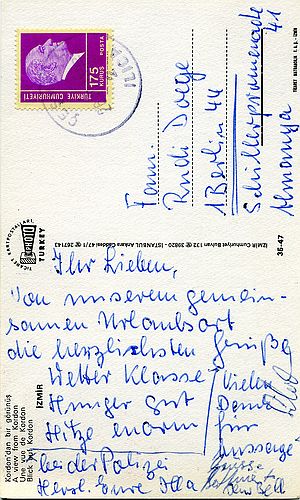 175
KURUŞ
POSTA
TÜRKİYE CUMHURİYETİ
ILICA
Fam.
Rudi Doege
1 Berlin 44
Schillerpromenade
41
Almanya
TICARET KARTPOSTALLARI
TURKEY
İZMİR Cumhuriyet Bulvarı 132
İSTANBUL Ankara Caddesi 47/1
35-47
Ihr Lieben,
Von unserem gemein-
samen Urlaubsort
die herzlichsten Grüße
Wetter Klasse
Hunger gut
Hitze enorm
Vielen
Dank
für
aussage
bei der Polizei
Herzl. Eure Illa
Kordon'dan bir görünüş
A view from Kordon
Une vue de Kordon
Blick auf Kordon
İZMİR